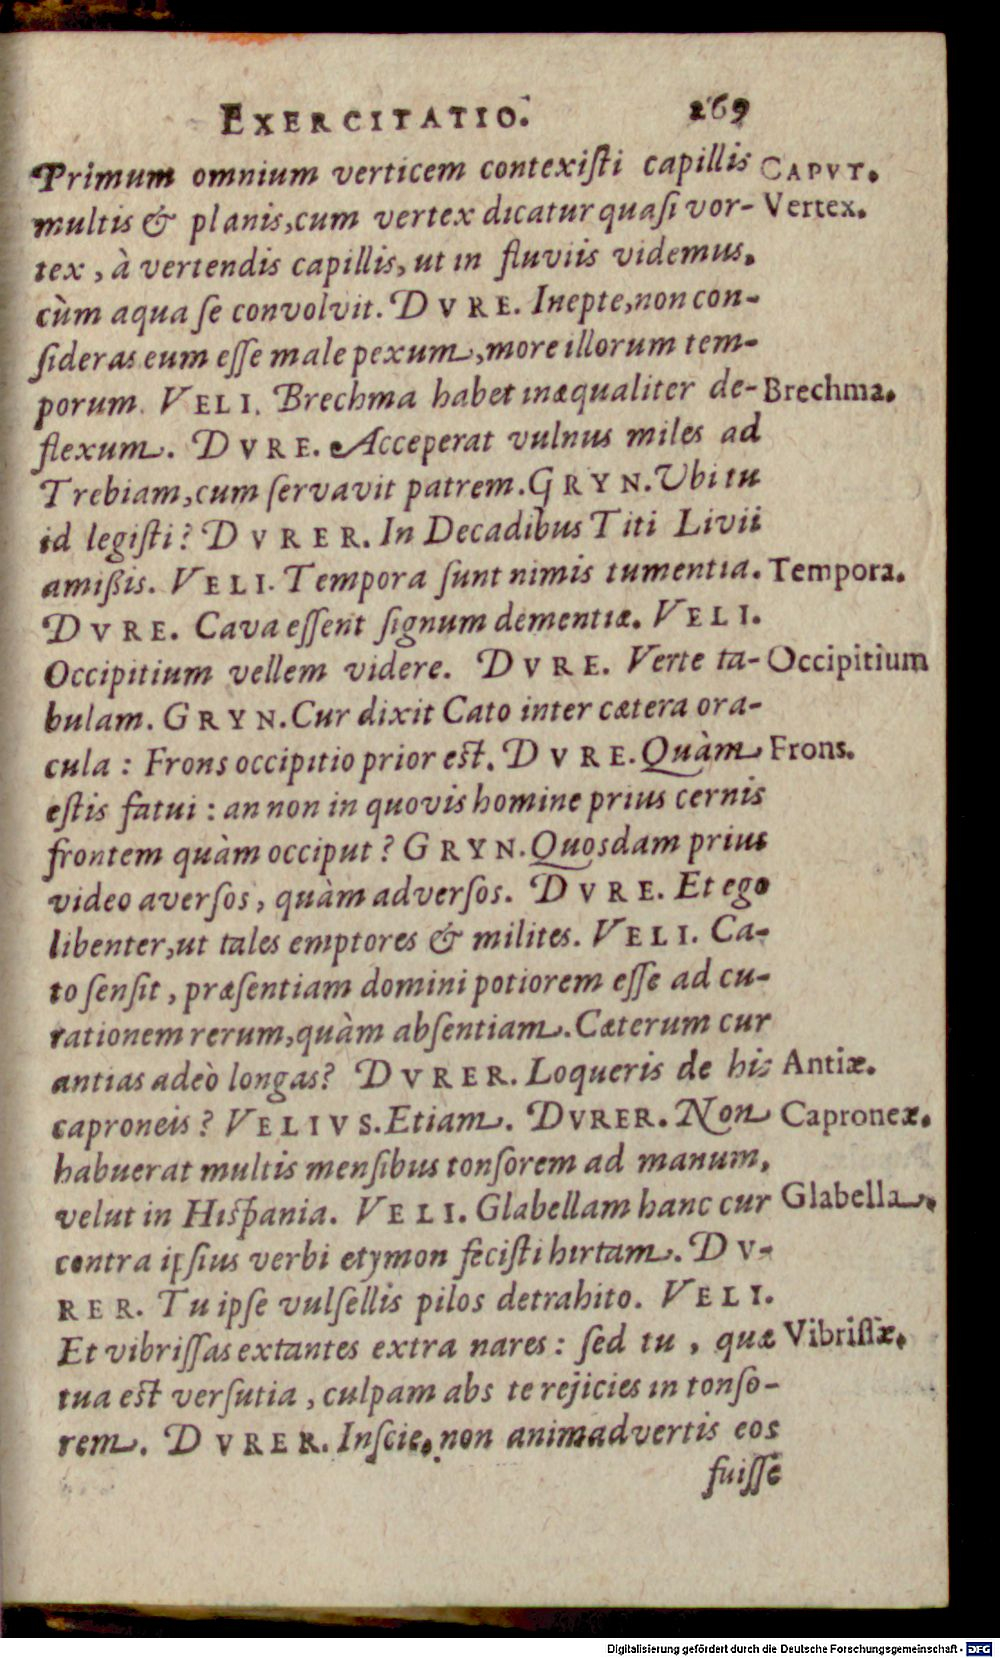 EXERCITATIO. 269
Primum omnium verticem contexiſti capillis CAPVT.
multis & planis,cum vertex dicatur quaſi vor- Vertex.
tex , à vertendis capillis, ut in fluviis videmus,
cùm aqua ſe convolvit. DVRE. Inepte,non con-
ſideras eum eſſe male pexum,more illorum tem-
porum. VELI. Brechma habet inæqualiter de- Brechma.
flexum. DVRE. Acceperat vulnus miles ad
Trebiam,cum ſervavit patrem. GRYN. Ubi tu
id legiſti? DVRER. In Decadibus Titi Livii
amißis. VELI. Tempora ſunt nimis tumentia. Tempora.
DVRE. Cava eſſent ſignum dementiæ. VELI.
Occipitium vellem videre. DVRE. Verte ta- Occipitium
bulam. GRYN. Cur dixit Cato inter cætera ora-
cula : Frons occipitio prior eſt. DVRE. Quàm Frons.
eſtis fatui : an non in quovis homine prius cernis
frontem quàm occiput? GRYN. Quosdam prius
video averſos, quàm adverſos. DVRE. Et ego
libenter,ut tales emptores & milites. VELI. Ca-
to ſenſit, præſentiam domini potiorem eſſe ad cu-
rationem rerum,quàm abſentiam. Cæterum cur
antias adeò longas? DVRER. Loqueris de his Antiæ.
caproneis? VELIVS. Etiam. DVRER. Non Caproneæ.
habuerat multis menſibus tonſorem ad manum,
velut in Hiſpania. VELI. Glabellam hanc cur Glabella.
contra ipſius verbi etymon feciſti hirtam. DV-
RER. Tu ipſe vulſellis pilos detrahito. VELI.
Et vibriſſas extantes extra nares : ſed tu , quæ Vibriſſæ.
tua eſt verſutia , culpam abs te rejicies in tonſo-
rem. DVRER. Inſcie, non animadvertis eos
fuiſſe
Digitalisierung gefördert durch die Deutsche Forschungsgemeinschaft - DFG